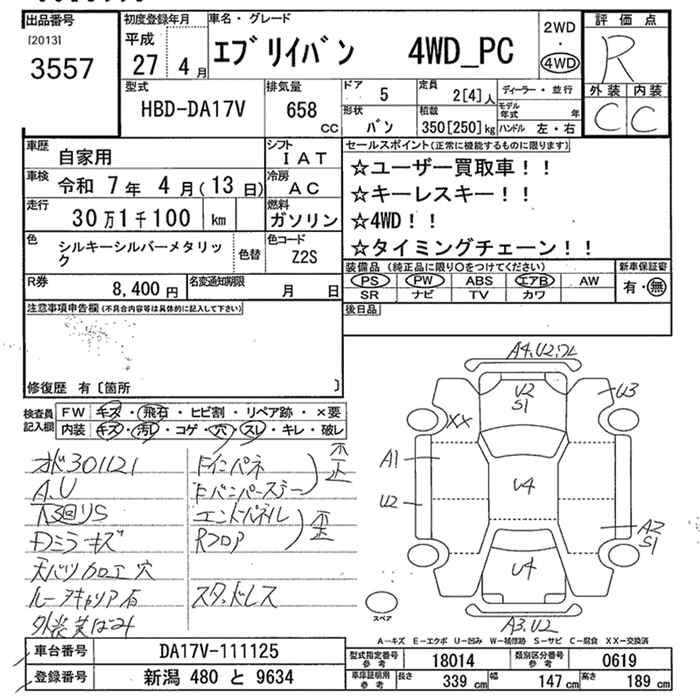 出品番号
[2013]
3557
初度登録年月
平成
27 4月
車名・グレード
エブリイバン 4WD_PC
2WD
・
4WD
評価点
R
外装 内装
C C
型式
HBD-DA17V
排気量
658
cc
ドア
5
定員
2[4]人
形状
バン
積載
350[250]kg
ディーラー・並行
モデル年式 年
ハンドル 左・右
車歴
自家用
シフト
IAT
車検
令和 7年 4月(13日)
冷房
AC
走行
30万1千100 km
燃料
ガソリン
色
シルキーシルバーメタリック
色替
色コード
Z2S
R券
8,400円
名変通知期限
月 日
セールスポイント(正常に機能するものに限ります)
☆ユーザー買取車!!
☆キーレスキー!!
☆4WD!!
☆タイミングチェーン!!
装備品(純正品に限り○をつけてください)
PS PW ABS エアB AW
SR ナビ TV カワ
新車保証書
有・無
後日品
注意事項申告欄(不具合内容等は具体的に記入して下さい)
修復歴 有〔箇所 〕
検査員記入欄
FW キズ・飛石・ヒビ割・リペア跡・×要
内装 キズ・汚レ・コゲ・穴・スレ・キレ・破レ
301121
A.U
Dミラーキズ
天バリ加工穴
ルーフキャリア有
Fインパネ
エンドパネル
Rフロア
歪
歪
スタッドレス
A4.U2.ワレ
U2
S1
U3
XX
A1
U4
U2
A2
S1
U4
A3.U2
スペア
A-キズ E-エクボ U-凹み W-補修跡 S-サビ C-腐食 XX-交換済
車台番号
DA17V-111125
登録番号
新潟 480 と 9634
型式指定番号
参考
18014
類別区分番号
参考
0619
車庫証明用
参考
長さ
339 cm
幅
147 cm
高さ
189 cm